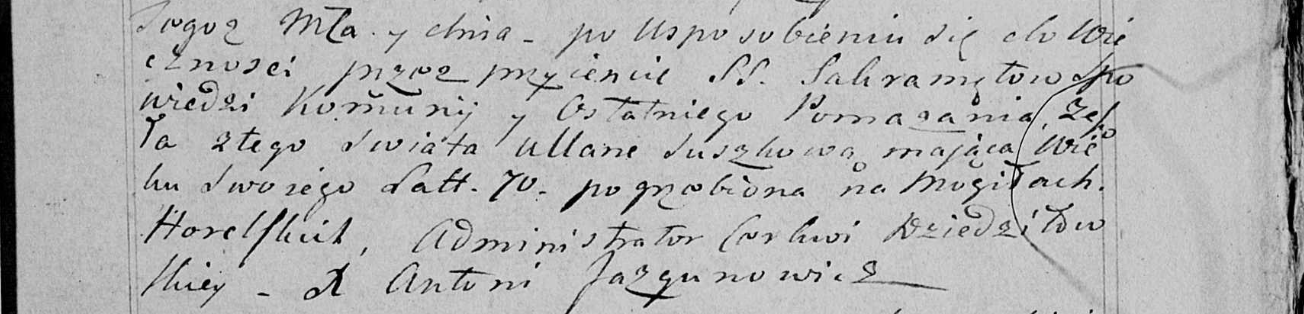 Togoż Mca. y dnia - po Usposobieniu się do Wie
czności przez przyięcie SS. Sakramętow Spo
wiedzi Komunij y Ostatniego Pomazania, Ze
ła z tego Swiata Ullane Suszkowa maiąca Wie
ku Swoiego Latt. 70. pogrzebiona na Mogiłach.
Horelskich, Administrator Cerkwi Dziedziłow
skiey - X Antoni Jazgunowicz